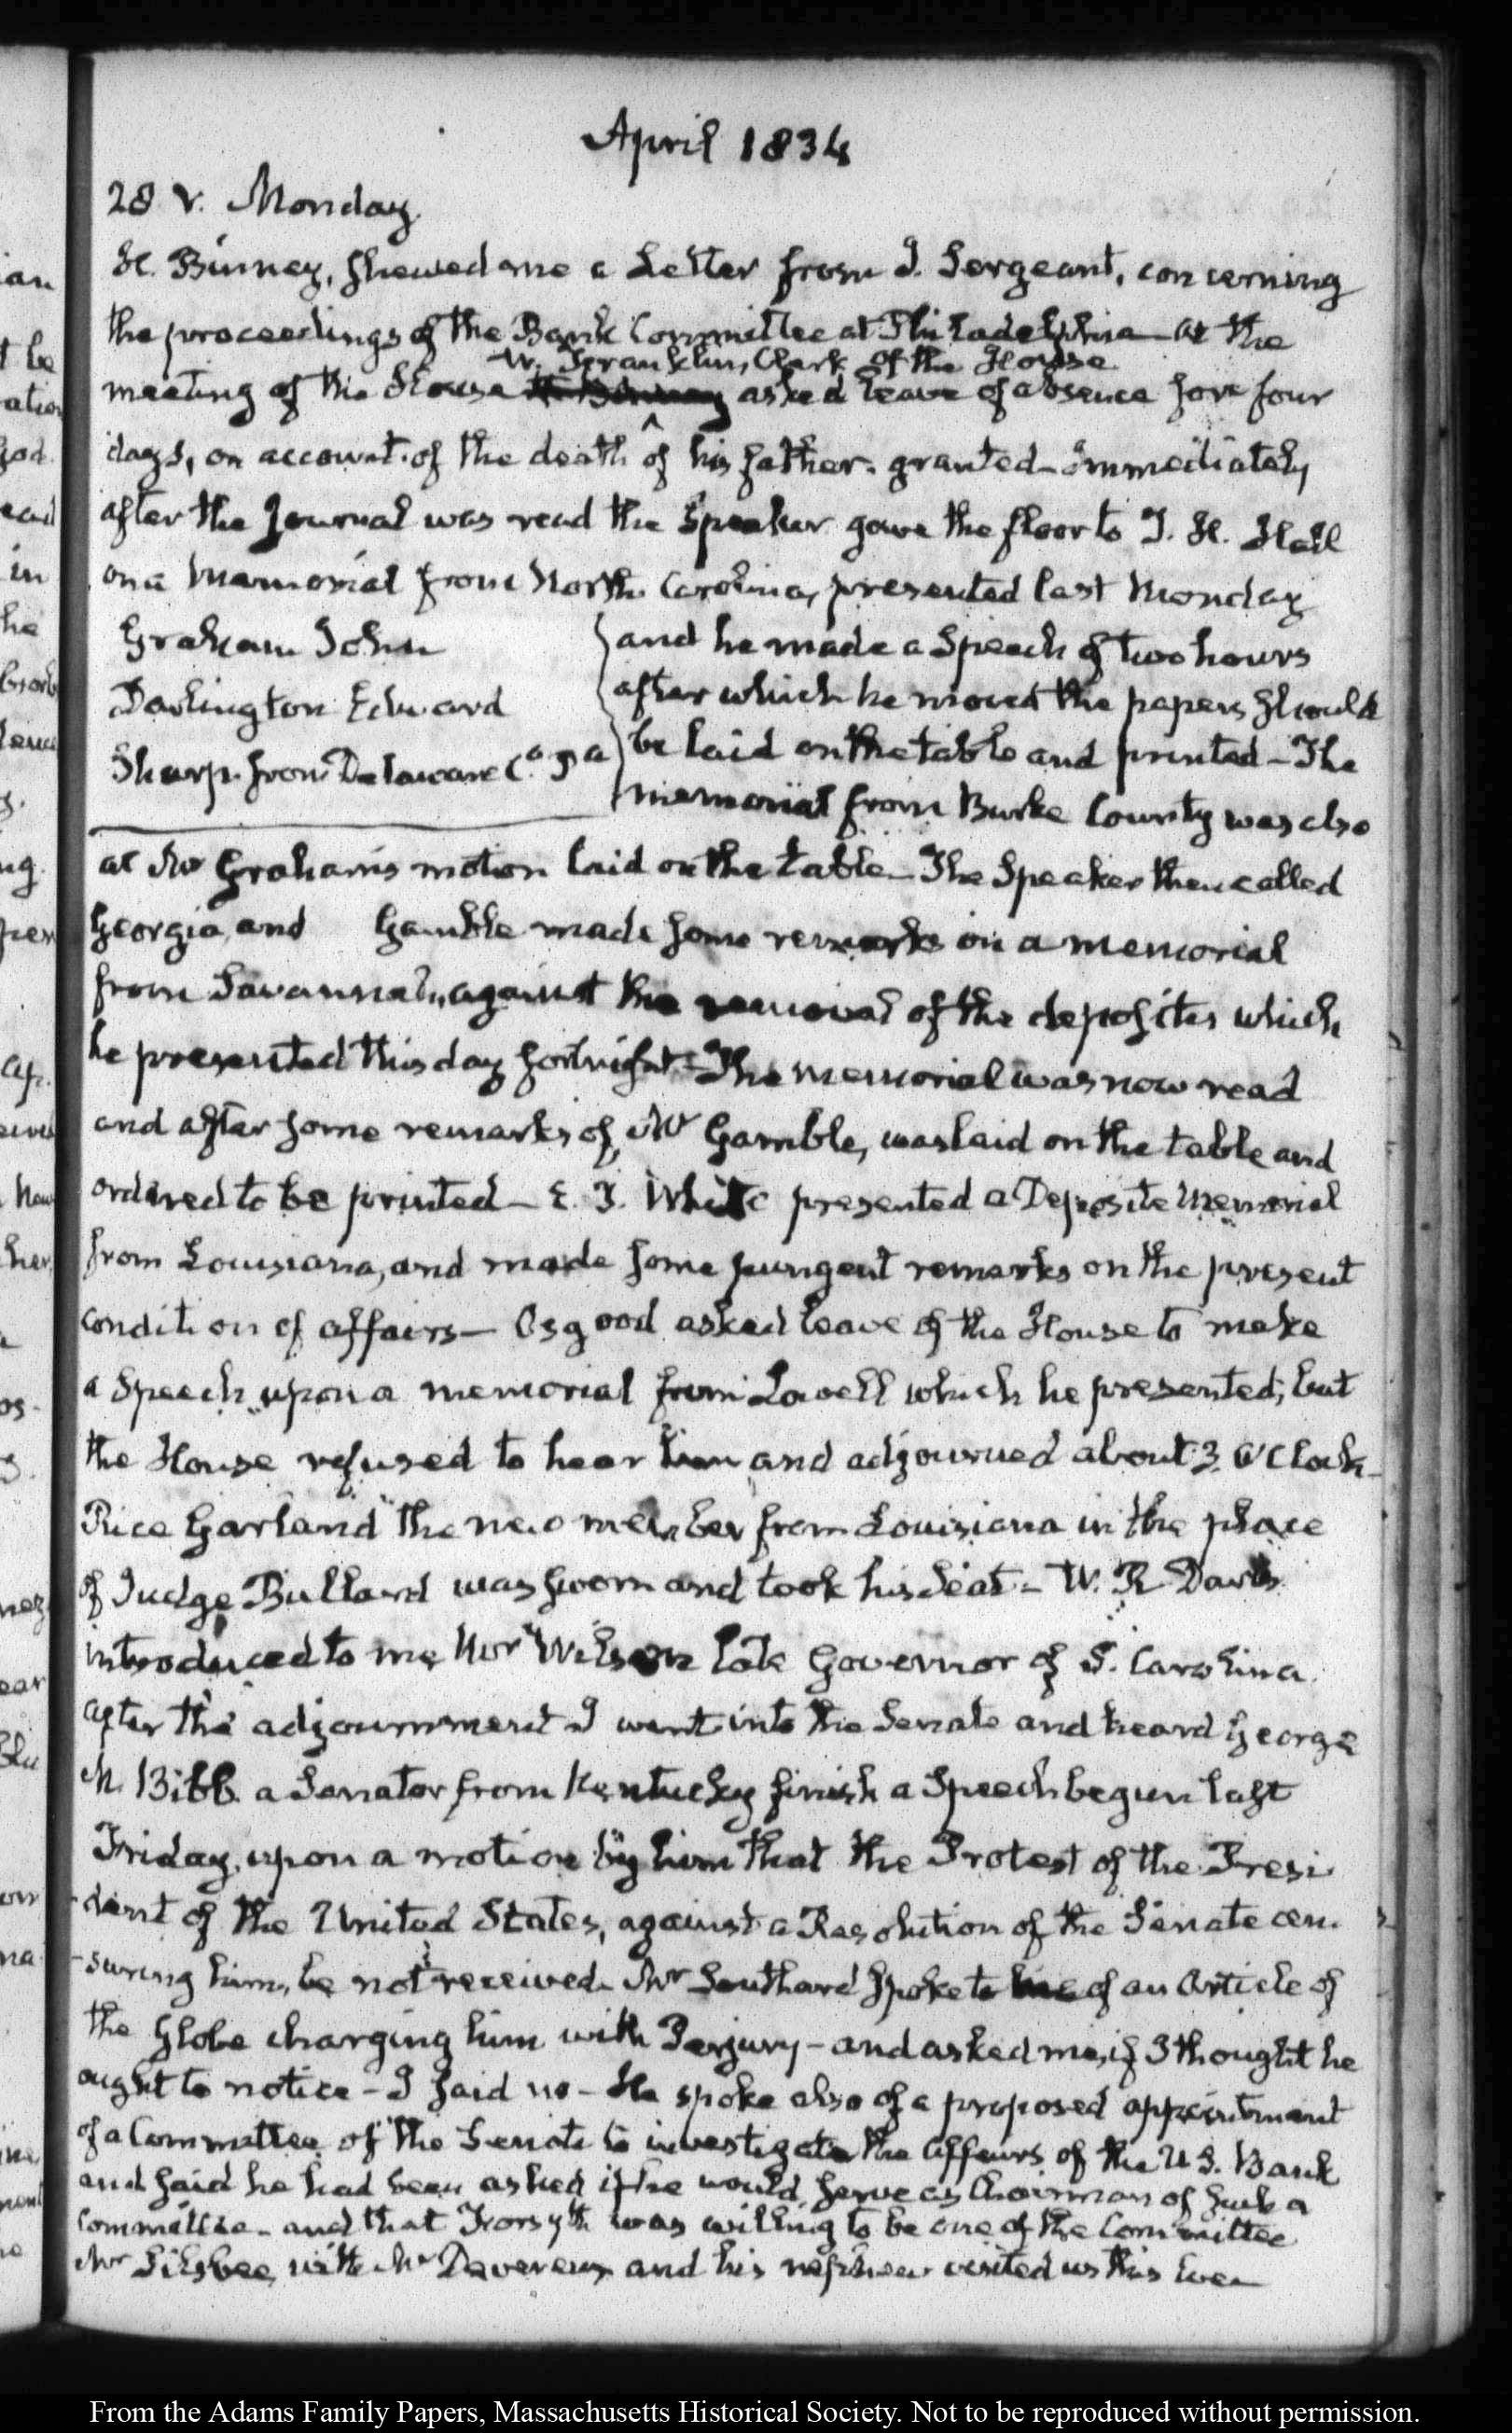 April 1834
28 V. Monday.
H. Binney, shewed me a Letter from J. Sergeant, concerning
the proceedings of the Bank Committee at Philadelphia — At the
W. Franklin, Clerk of the House
meeting of the House H. Binney asked leave of absence for four
days, on account of the death ^ of his father. granted — Immediately
after the Journal was read the Speaker gave the floor to T. H. Hall
on a Memorial from North Carolina, presented last Monday
Graham John
Darlington Edward
Sharp. from Delaware Co. Pa
and he made a Speech of two hours
after which he moved the papers should
be laid on the table and printed — The
memorial from Burke County was also
at Mr Graham's motion laid on the table — The Speaker then called
Georgia, and Gamble made some remarks on a memorial
from Savannah, against the removal of the deposites which
he presented this day fortnight — The memorial was now read
and after some remarks of Mr Gamble, was laid on the table and
ordered to be printed — E. D. White presented a Deposite Memorial
from Louisiana, and made some pungent remarks on the present
condition of affairs — Osgood asked leave of the House to make
a Speech upon a memorial from Lowell which he presented; but
the House refused to hear him and adjourned about 3. O'Clock —
Rice Garland the new member from Louisiana in the place
of Judge Bullard was sworn and took his Seat — W. R. Davis
introduced to me Mr Wilson late Governor of S. Carolina.
After the adjournment I went into the Senate and heard George
M. Bibb a Senator from Kentucky finish a Speech begun last
Friday, upon a motion by him that the Protest of the Presi
-dent of the United States, against a Resolution of the Senate cen-
-suring him, be not received. Mr Southard spoke to me of an Article of
the Globe charging him with Perjury — and asked me, if I thought he
ought to notice — I said no — He spoke also of a proposed appointment
of a Committee of the Senate to investigate the affairs of the U.S. Bank
and said he had been asked if he would serve as Chairman of such a
Committee — and that Forsyth was willing to be one of the Committee
Mr Silsbee with Mr Devereux and his nephew visited us this Eve
From the Adams Family Papers, Massachusetts Historical Society. Not to be reproduced without permission.